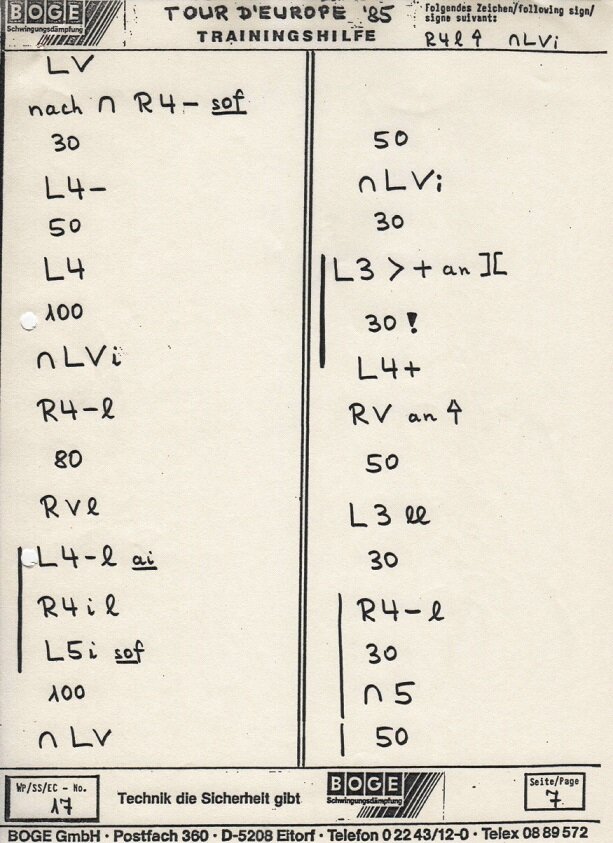 BOGE
Schwingungsdämpfung
TOUR D'EUROPE '85
TRAININGSHILFE
Folgendes Zeichen/following sign/
signe suivant:
R4l↑ ∩LVi
LV
nach ∩ R4- sof
30
L4-
50
L4
100
∩LVi
R4-l
80
RVl
L4-l ai
R4il
L5i sof
100
∩LV
50
∩LVi
30
L3>+ an ][
30!
L4+
RV an ↑
50
L3 ll
30
R4-l
30
∩5
50
WP/SS/EC - No.
17
Technik die Sicherheit gibt
BOGE
Schwingungsdämpfung
Seite/Page
7
BOGE GmbH · Postfach 360 · D-5208 Eitorf · Telefon 0 22 43/12-0 · Telex 08 89 572